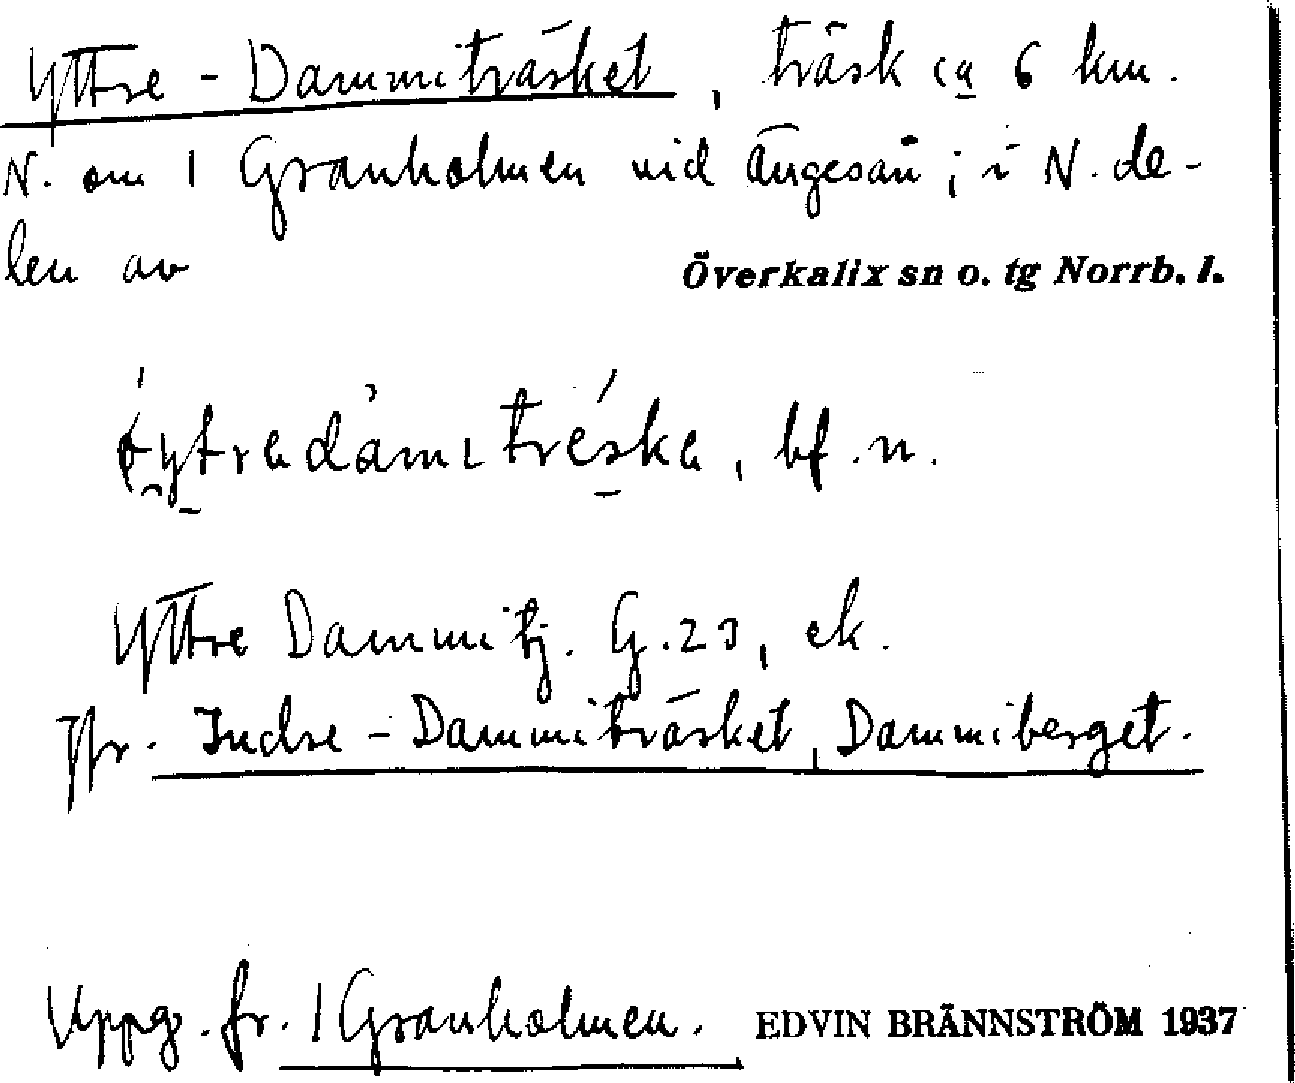 Yttre - Dammiträsket, träsk ca 6 km.
N. om 1 Granholmen vid Ängesån; i N. de-
len av Överkalix sn o. tg Norrb. l.
bf. n.
Yttre Dammitj. G. 23, ek.
Jfr. Indre - Dammiträsket, Dammiberget.
Uppg. fr. 1 Granholmen. EDVIN BRÄNNSTRÖM 1937